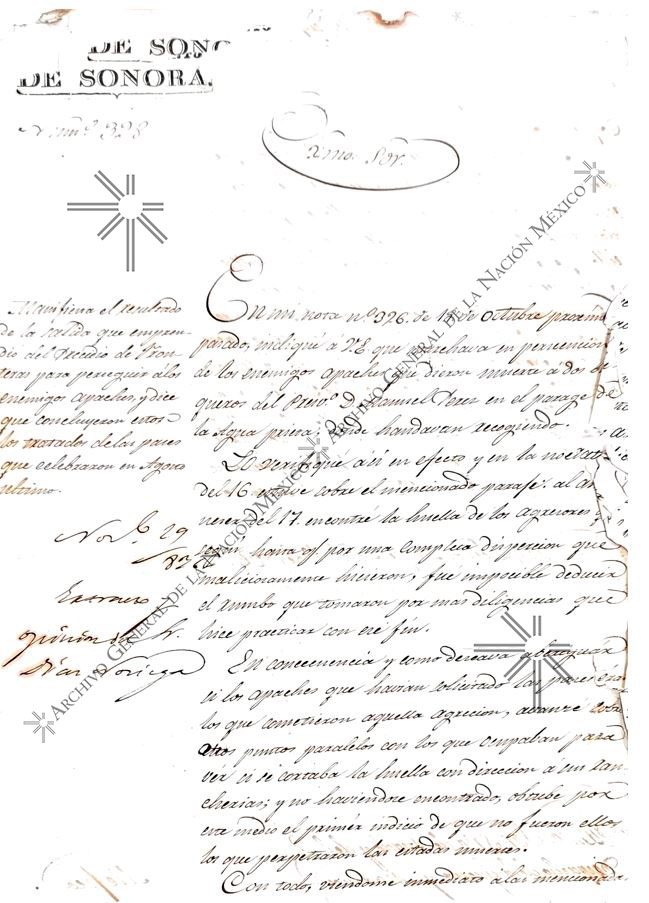 DE SONO
DE SONORA.
Num.º 328
Exmo. Sor.
Manifiesta el resultado
de la salida que empren-
dio del Presidio de Fron-
teras para perseguir á los
enemigos apaches, y dice
que concluyeron estos
los tratados de las paces
que celebraron en Agosto
ultimo.
Nov.e 19
Extracto
En mi nota n.º 326. de 17 de Octubre proximo
pasado, indiqué á V.E. que marchava en persecucion
de los enemigos apaches que dieron muerte á dos ba
queros del Presiv.º D. Manuel Perez en el parage de
la Agua prieta donde handavan recogiendo.
Lo verifique asi en efecto y en la noche
del 16 estuve sobre el mencionado parage. al ama
necer del 17. encontré la huella de los agresores
hasta q.e por una completa dispercion que
maliciosamente hicieron, fue imposible deducir
el rumbo que tomaron por mas diligencias que
hice practicar con ese fin.
En concecuencia y como deseava aberiguar
si los apaches que havian solicitado las paces eran
los que cometieron aquella agrecion, abanzé sobre
otros puntos paralelos con los que ocupaban para
vér si se cortaba la huella con direccion á sus ran
cherias; y no haviendose encontrado, obtube por
este medio el primér indicio de que no fueron ellos
los que perpetraron las citadas muertes.
Con todo, viendome inmediato á las mencionada
ARCHIVO GENERAL DE LA NACIÓN MÉXICO
ARCHIVO GENERAL DE LA NACIÓN MÉXICO